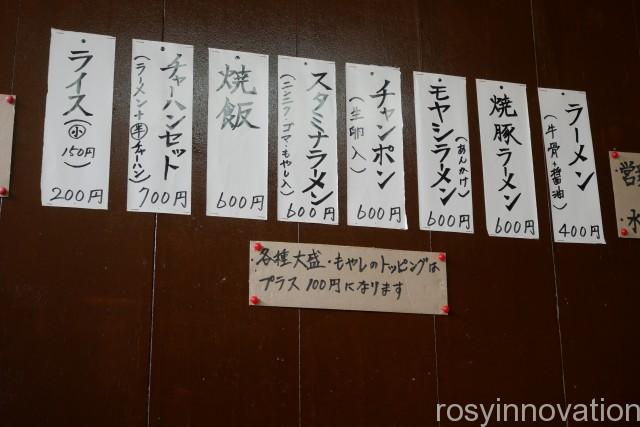 ラーメン
(牛骨+醤油)
400円
焼豚ラーメン
600円
モヤシラーメン
(あんかけ)
600円
チャンポン
(生卵入)
600円
スタミナラーメン
(ニンニク・ゴマ・もやし入)
600円
焼飯
600円
チャーハンセット
(ラーメン+半チャーハン)
700円
ライス
(小 150円)
200円
各種大盛・もやしのトッピングは
プラス100円になります
営
水
rosyinnovation